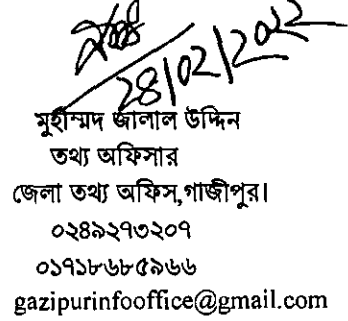 28/02/2022
মুহাম্মদ জালাল উদ্দিন
তথ্য অফিসার
জেলা তথ্য অফিস,গাজীপুর।
০২৪৯২৭৩২০৭
০১৭১৮৬৮৫৯৬৬
gazipurinfooffice@gmail.com